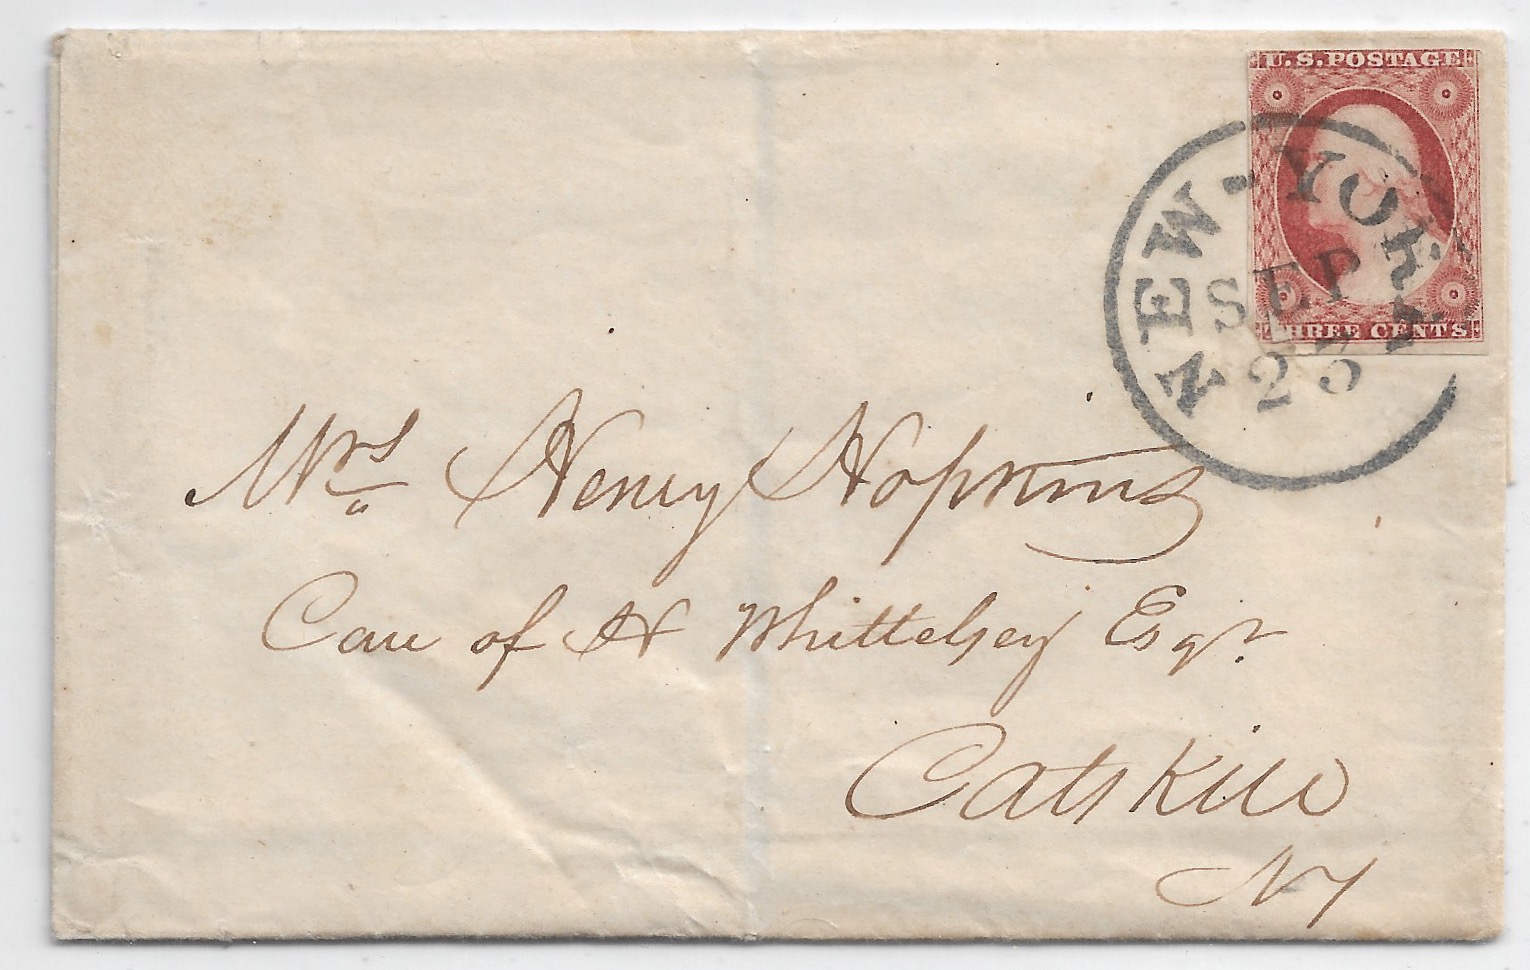 U.S. POSTAGE
THREE CENTS
NEW-YORK
SEP
23
Mrs Henry Hopkins
Care of H Whittelsey Esqr.
Catskill
NY